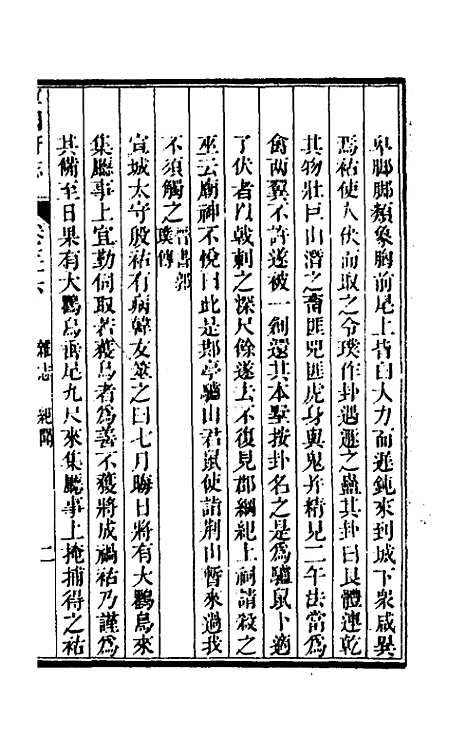 卑脚脚類象胸前尾上皆白大力而遲鈍來到城下衆咸異
焉祜使人伏而取之令璞作卦遇遯之蠱其卦曰艮體連乾
其物壯巨山潛之畜匪兕匪虎身與鬼并精見二午法當爲
禽兩翼不許遂被一創還其本墅按卦名之是爲驢鼠卜適
了伏者以戟刺之深尺餘遂去不復見郡綱紀上祠請殺之
巫云廟神不悅曰此是䢼亭驢山君鼠使詣荆山暫來過我
不須觸之晉書郭璞傳
宣城太守殷祐有病韓友筮之曰七月晦日將有大鸜鳥來
集廳事上宜勤伺取若獲鳥者爲善不獲將成禍祐乃謹爲
其備至日果有大鸜鳥垂尾九尺來集廳事上掩捕得之祐
雜志 紀聞 二